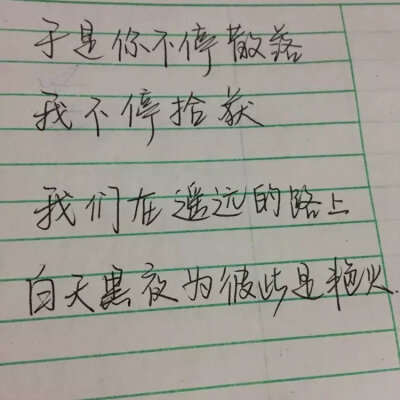 于是你不停散落
我不停拾获
我们在遥远的路上
白天黑夜为彼此是艳火.